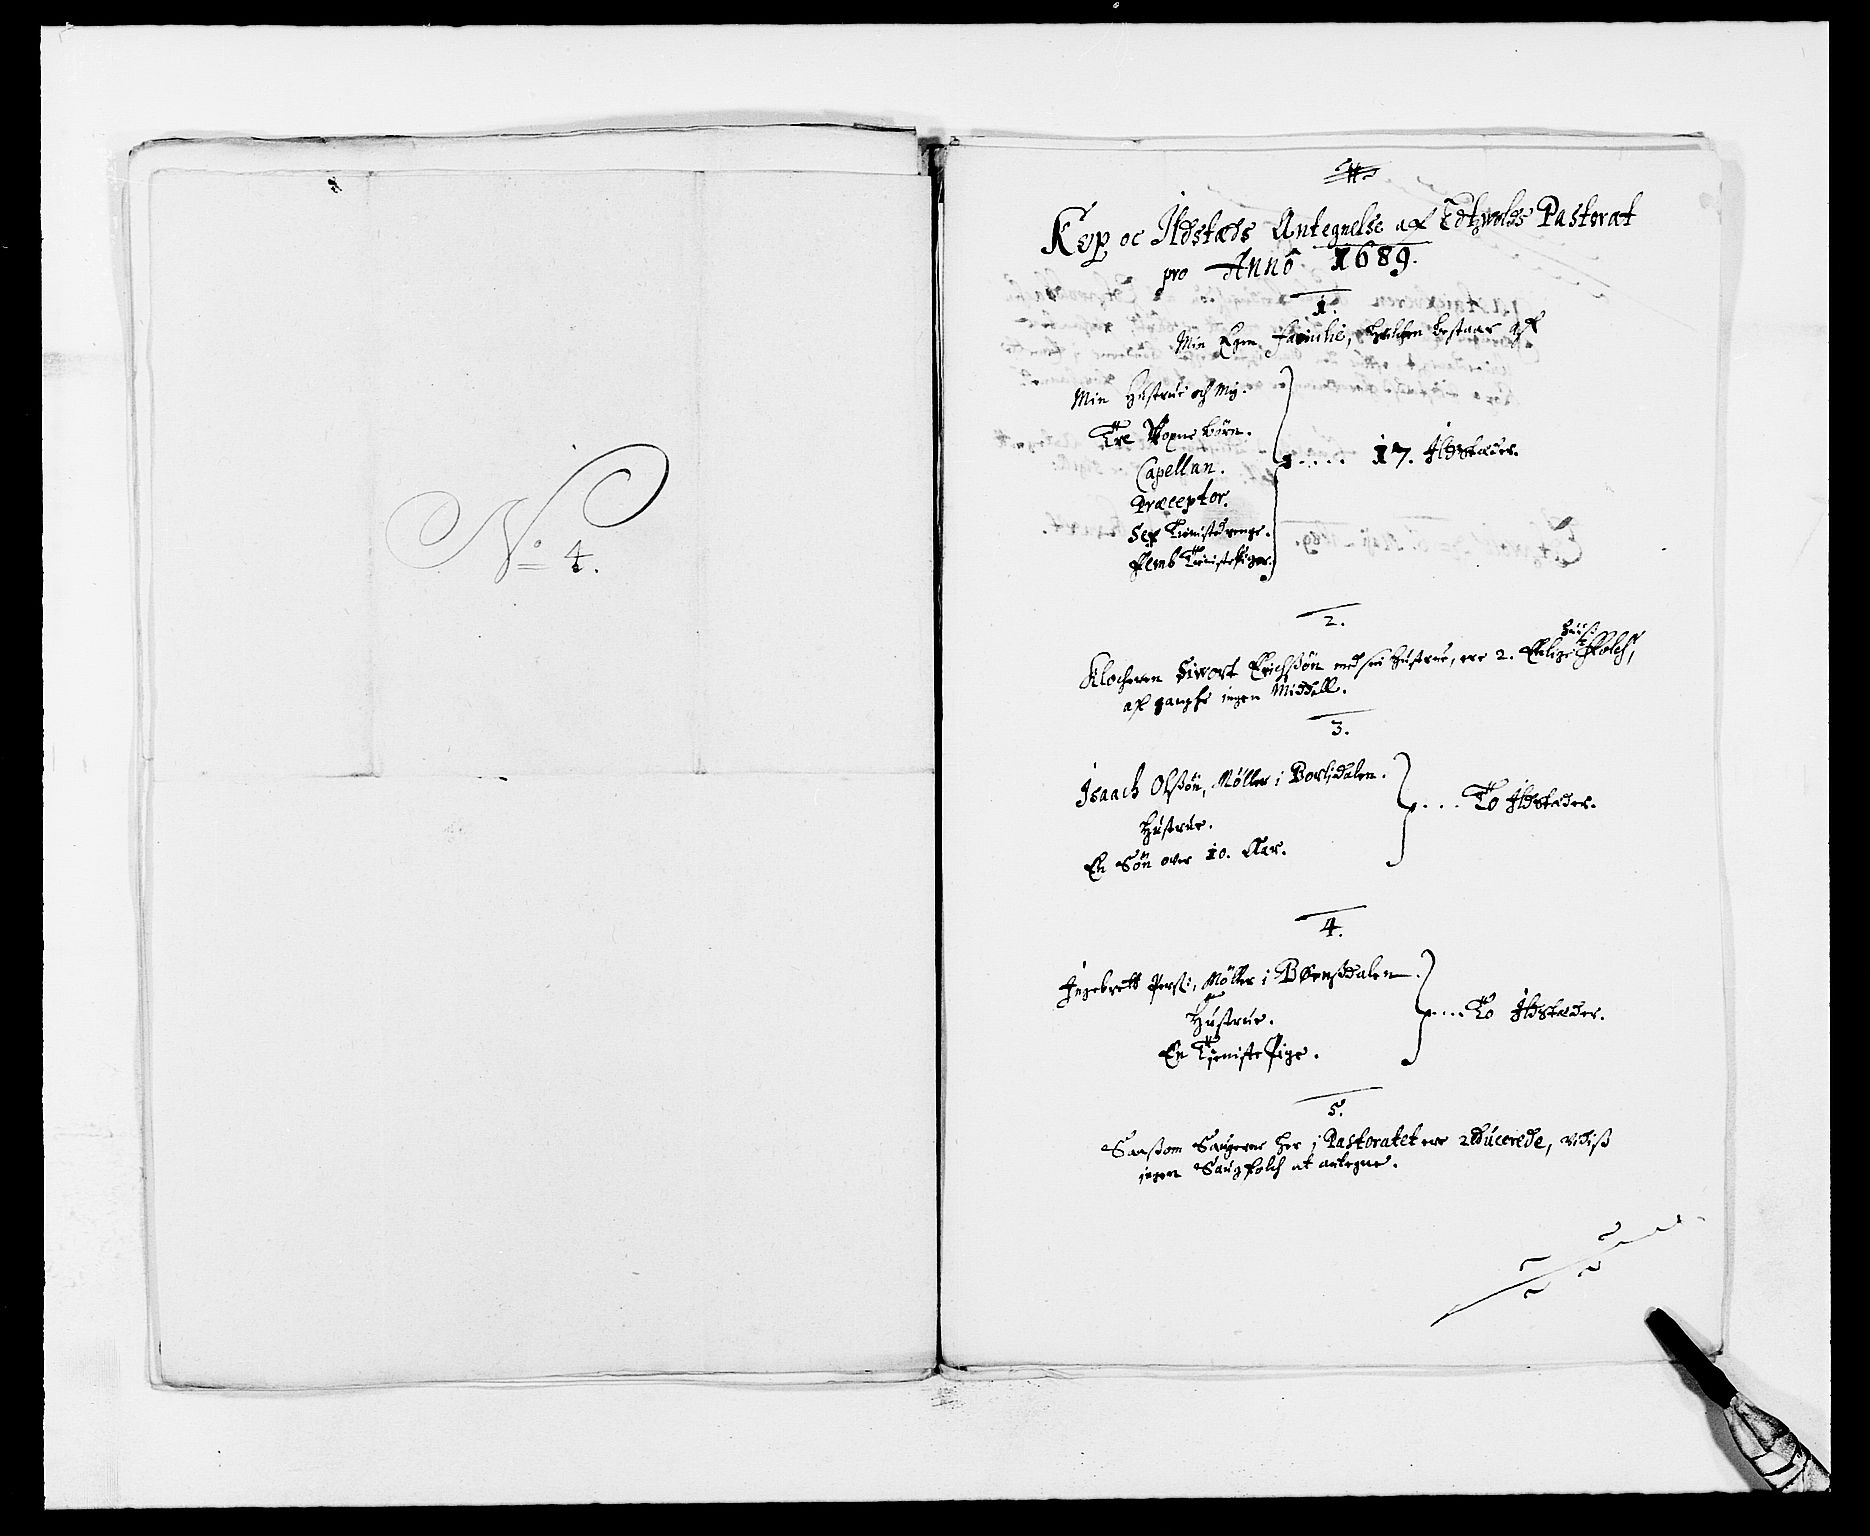 No 4.
Kop oc Ildstæds Antegnelse aff Edtzwolds Pastorat
pro Anno 1689.
1.
Min Egen Familie, hvilchen bestaar aff
Min Hustrue och Mig.
Tre Voxne börn.
Capellan.
Præceptor.
Sex Tienistedrenge.
Femb Tienistepiger.
17. Ildstæder.
2.
Klocheren Siwort Erichssön med sin Hustrue, ere 2. Ehlige Huus: Folch,
aff gandske ingen Middell.
3.
Isaach Olssön, Möller i
Hustrue.
En Sön over 10. Aar.
To Ildstæder.
4.
Ingebrett Pers:, Möller i
Hustrue.
En Tieniste Pige.
To Ildstæder.
5.
Saassom Saugerne her i Pastoratet ere reducerede, vidis
ingen Saugfolch at antegne.